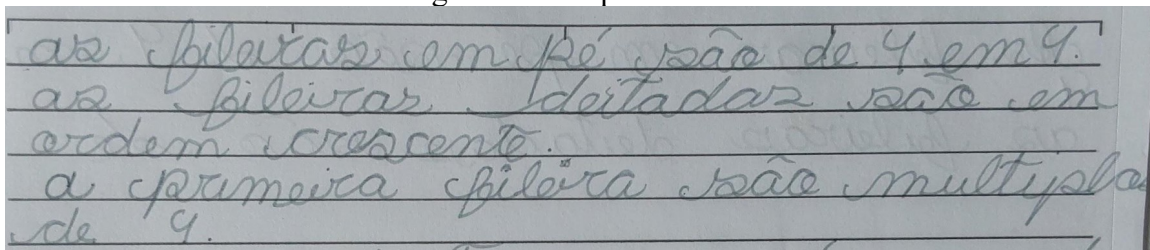 as fileiras em pé são de 4 em 4.
as fileiras deitadas são em
ordem crescente.
a primeira fileira são multiplos
de 4.